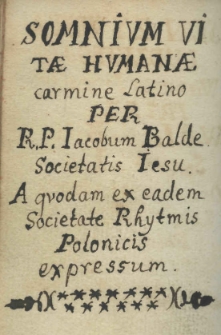 SOMNIVM VI
TÆ HVMANÆ
carmine Latino
PER
R.P. Iacobum Balde
Societatis Iesu.
A qvodam ex eadem
Societate Rhytmis
Polonicis
expressum.